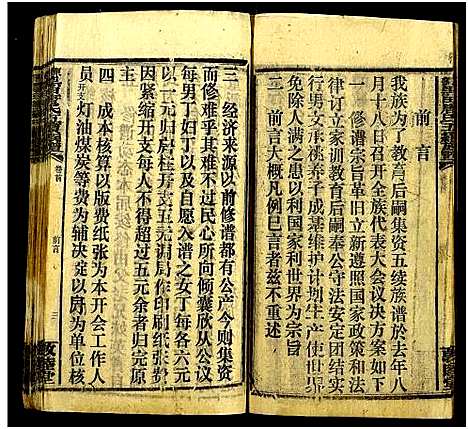 前言
我族为了教育后嗣集资五续族谱於去年八
月十八日召开全族代表大会议决方案如下
一 修谱宗旨革旧立新遵照国家政策和法
律订立家训教育后嗣奉公守法安定团结实
行男女承祧养子成基维护计划生产使世界
免除人满之患以利国家利世界
二 前言大概凡例已言者兹不重述
三 经济来源以前修谱都有公产今则集资
而修难乎其难不过民心所向倾囊欣从公议
每男丁六元以及自愿入谱之女丁每各六元
以一元归
因从紧缩开支每人不得超过五元余者归完原
主
四 成本核算以版费纸张为本开会工作人
员开支灯油煤炭等费为辅决定以房为单位核
卷首
前言
三
敦